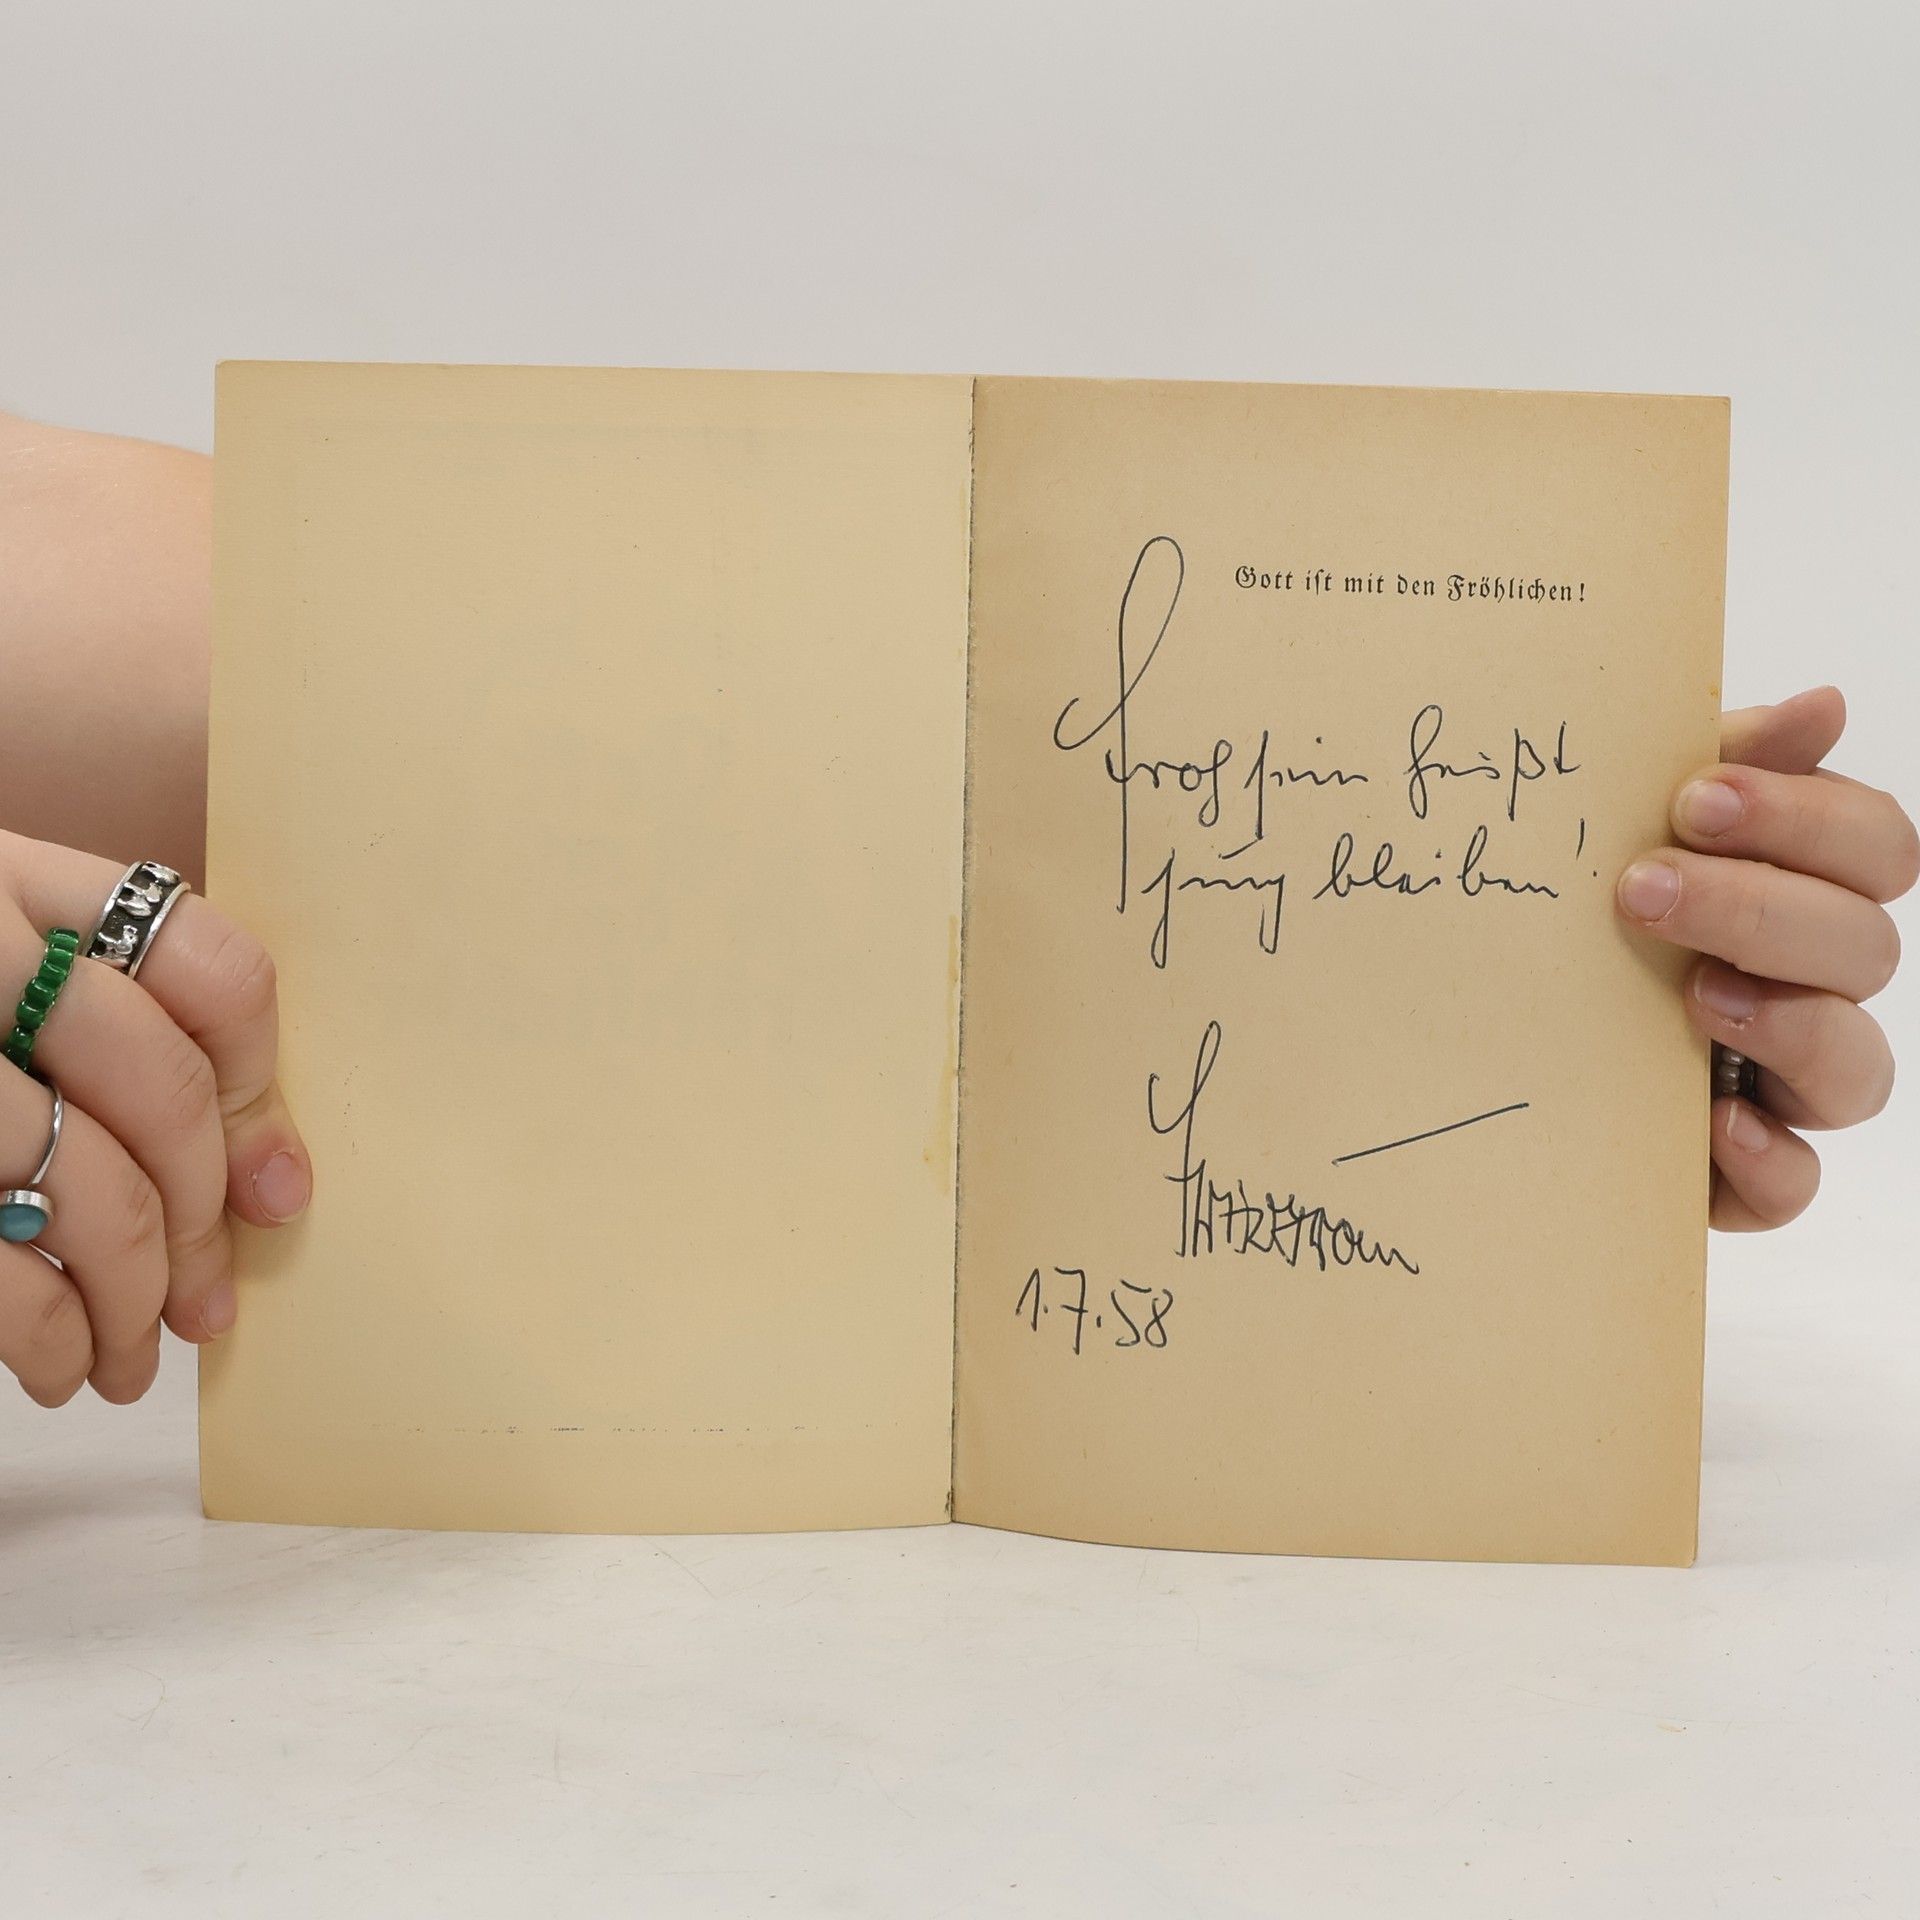 Gott ist mit den Fröhlichen!
Froh sein heißt
jung bleiben!
1.7.58